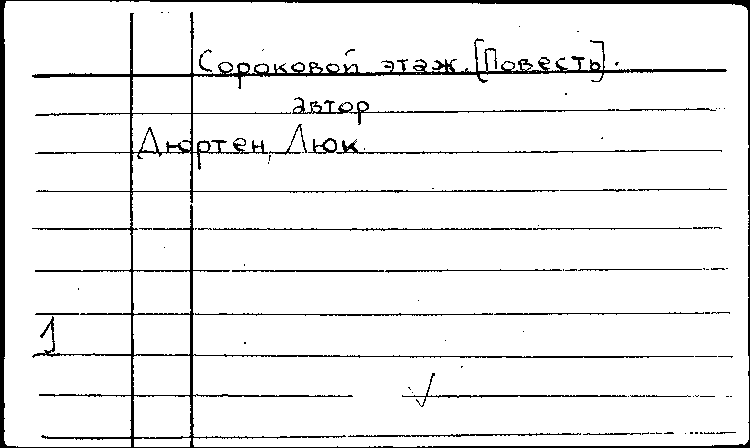 Сороковой этаж. [Повесть].
автор
Дюртен, Люк.
1